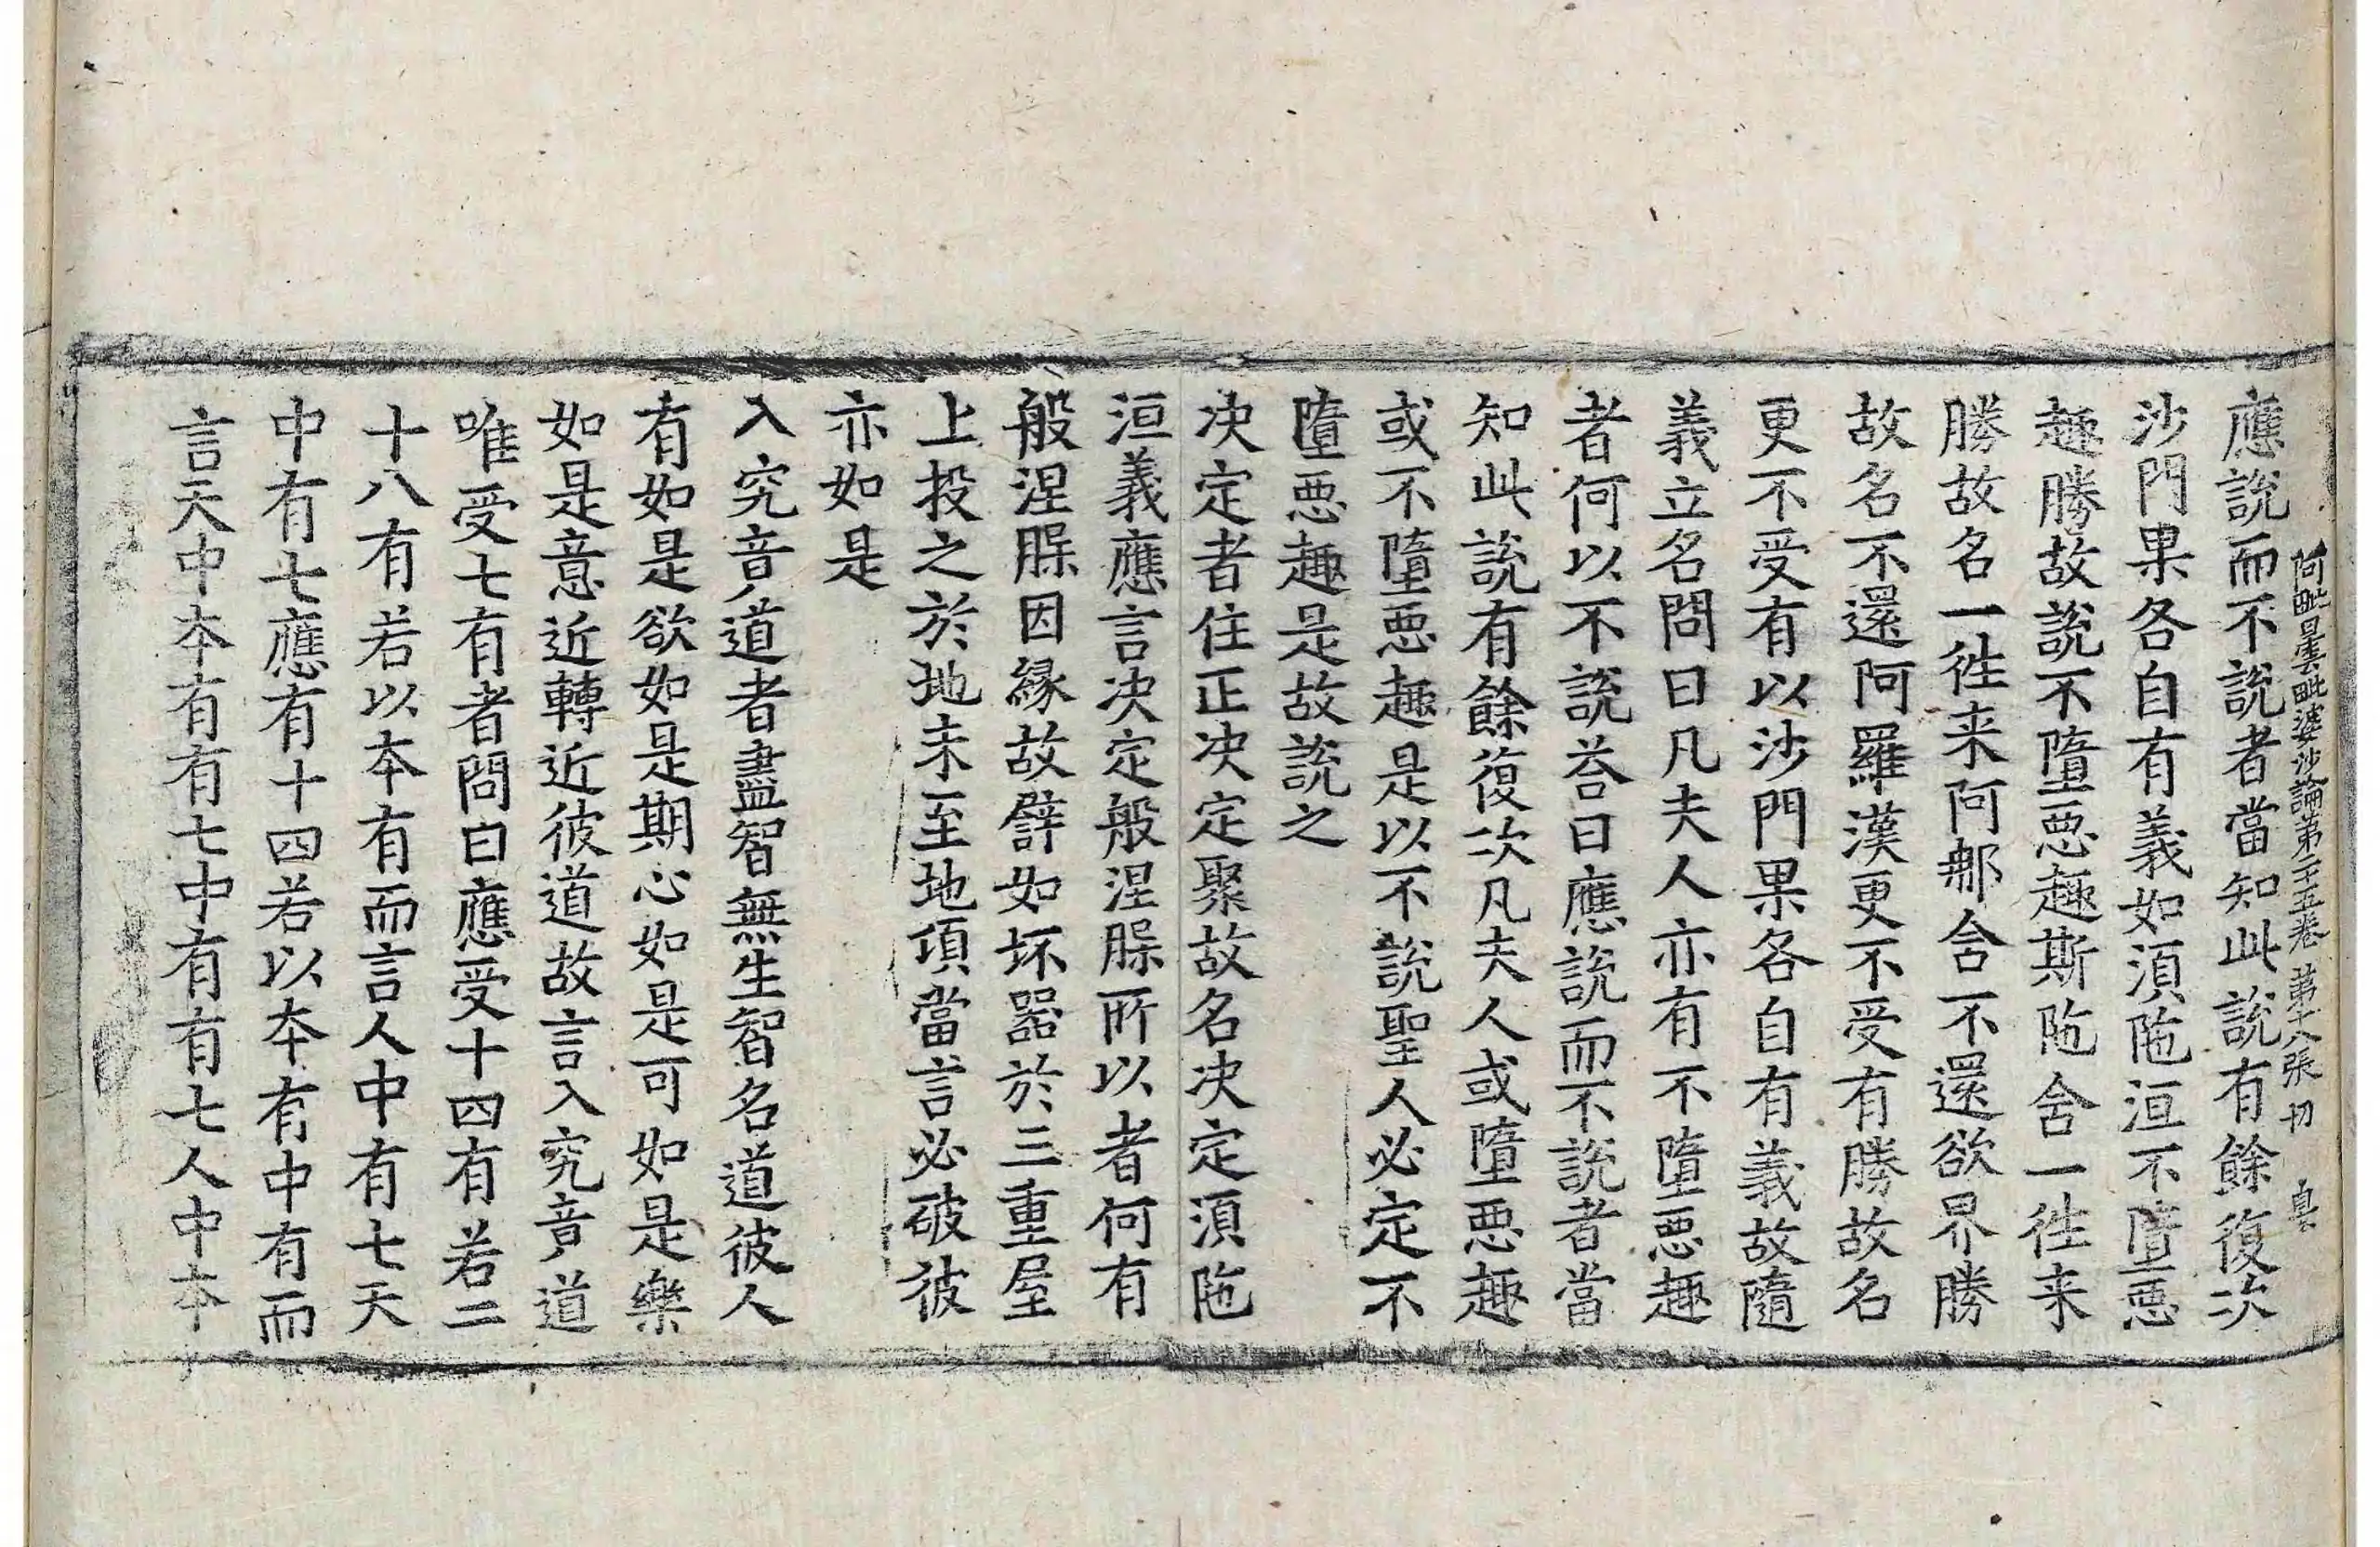 阿毗曇毗婆沙論第二十五卷 第十八張 切
應說而不說者當知此說有餘復次
沙門果各自有義如湏陁洹不墮惡
趣勝故說不墮惡趣斯陁含一往来
勝故名一往来阿那含不還欲界勝
故名不還阿羅漢更不受有勝故名
更不受有以沙門果各自有義故隨
義立名問曰凡夫人亦有不墮惡趣
者何以不說荅曰應說而不說者當
知此說有餘復次凡夫人或墮惡趣
或不墮惡趣是以不說聖人必定不
墮惡趣是故說之
决定者住正决定聚故名决定湏陁
洹義應言决定般涅槃所以者何有
般涅槃因緣故譬如坏器於三重屋
上投之於地未至地頃當言必破彼
亦如是
入究竟道者盡智無生智名道彼人
有如是欲如是期心如是可如是樂
如是意近轉近彼道故言入究竟道
唯受七有者問曰應受十四有若二
十八有若以本有而言人中有七天
中有七應有十四若以本有中有而
言天中本有有七中有有七人中本